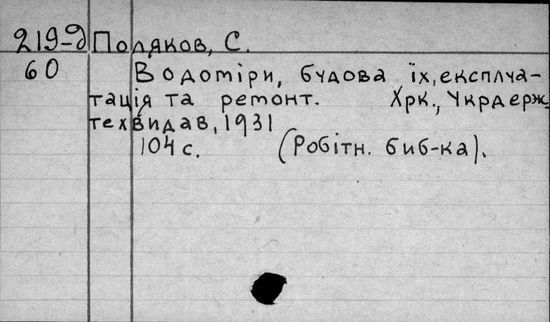 219-д Поляков, С.
60 Водотіри, будова їх, експлуа-
тація та ремонт. Хрк., Укрдерж-
техвидав, 1931
104 с. (Робітн. биб-ка).